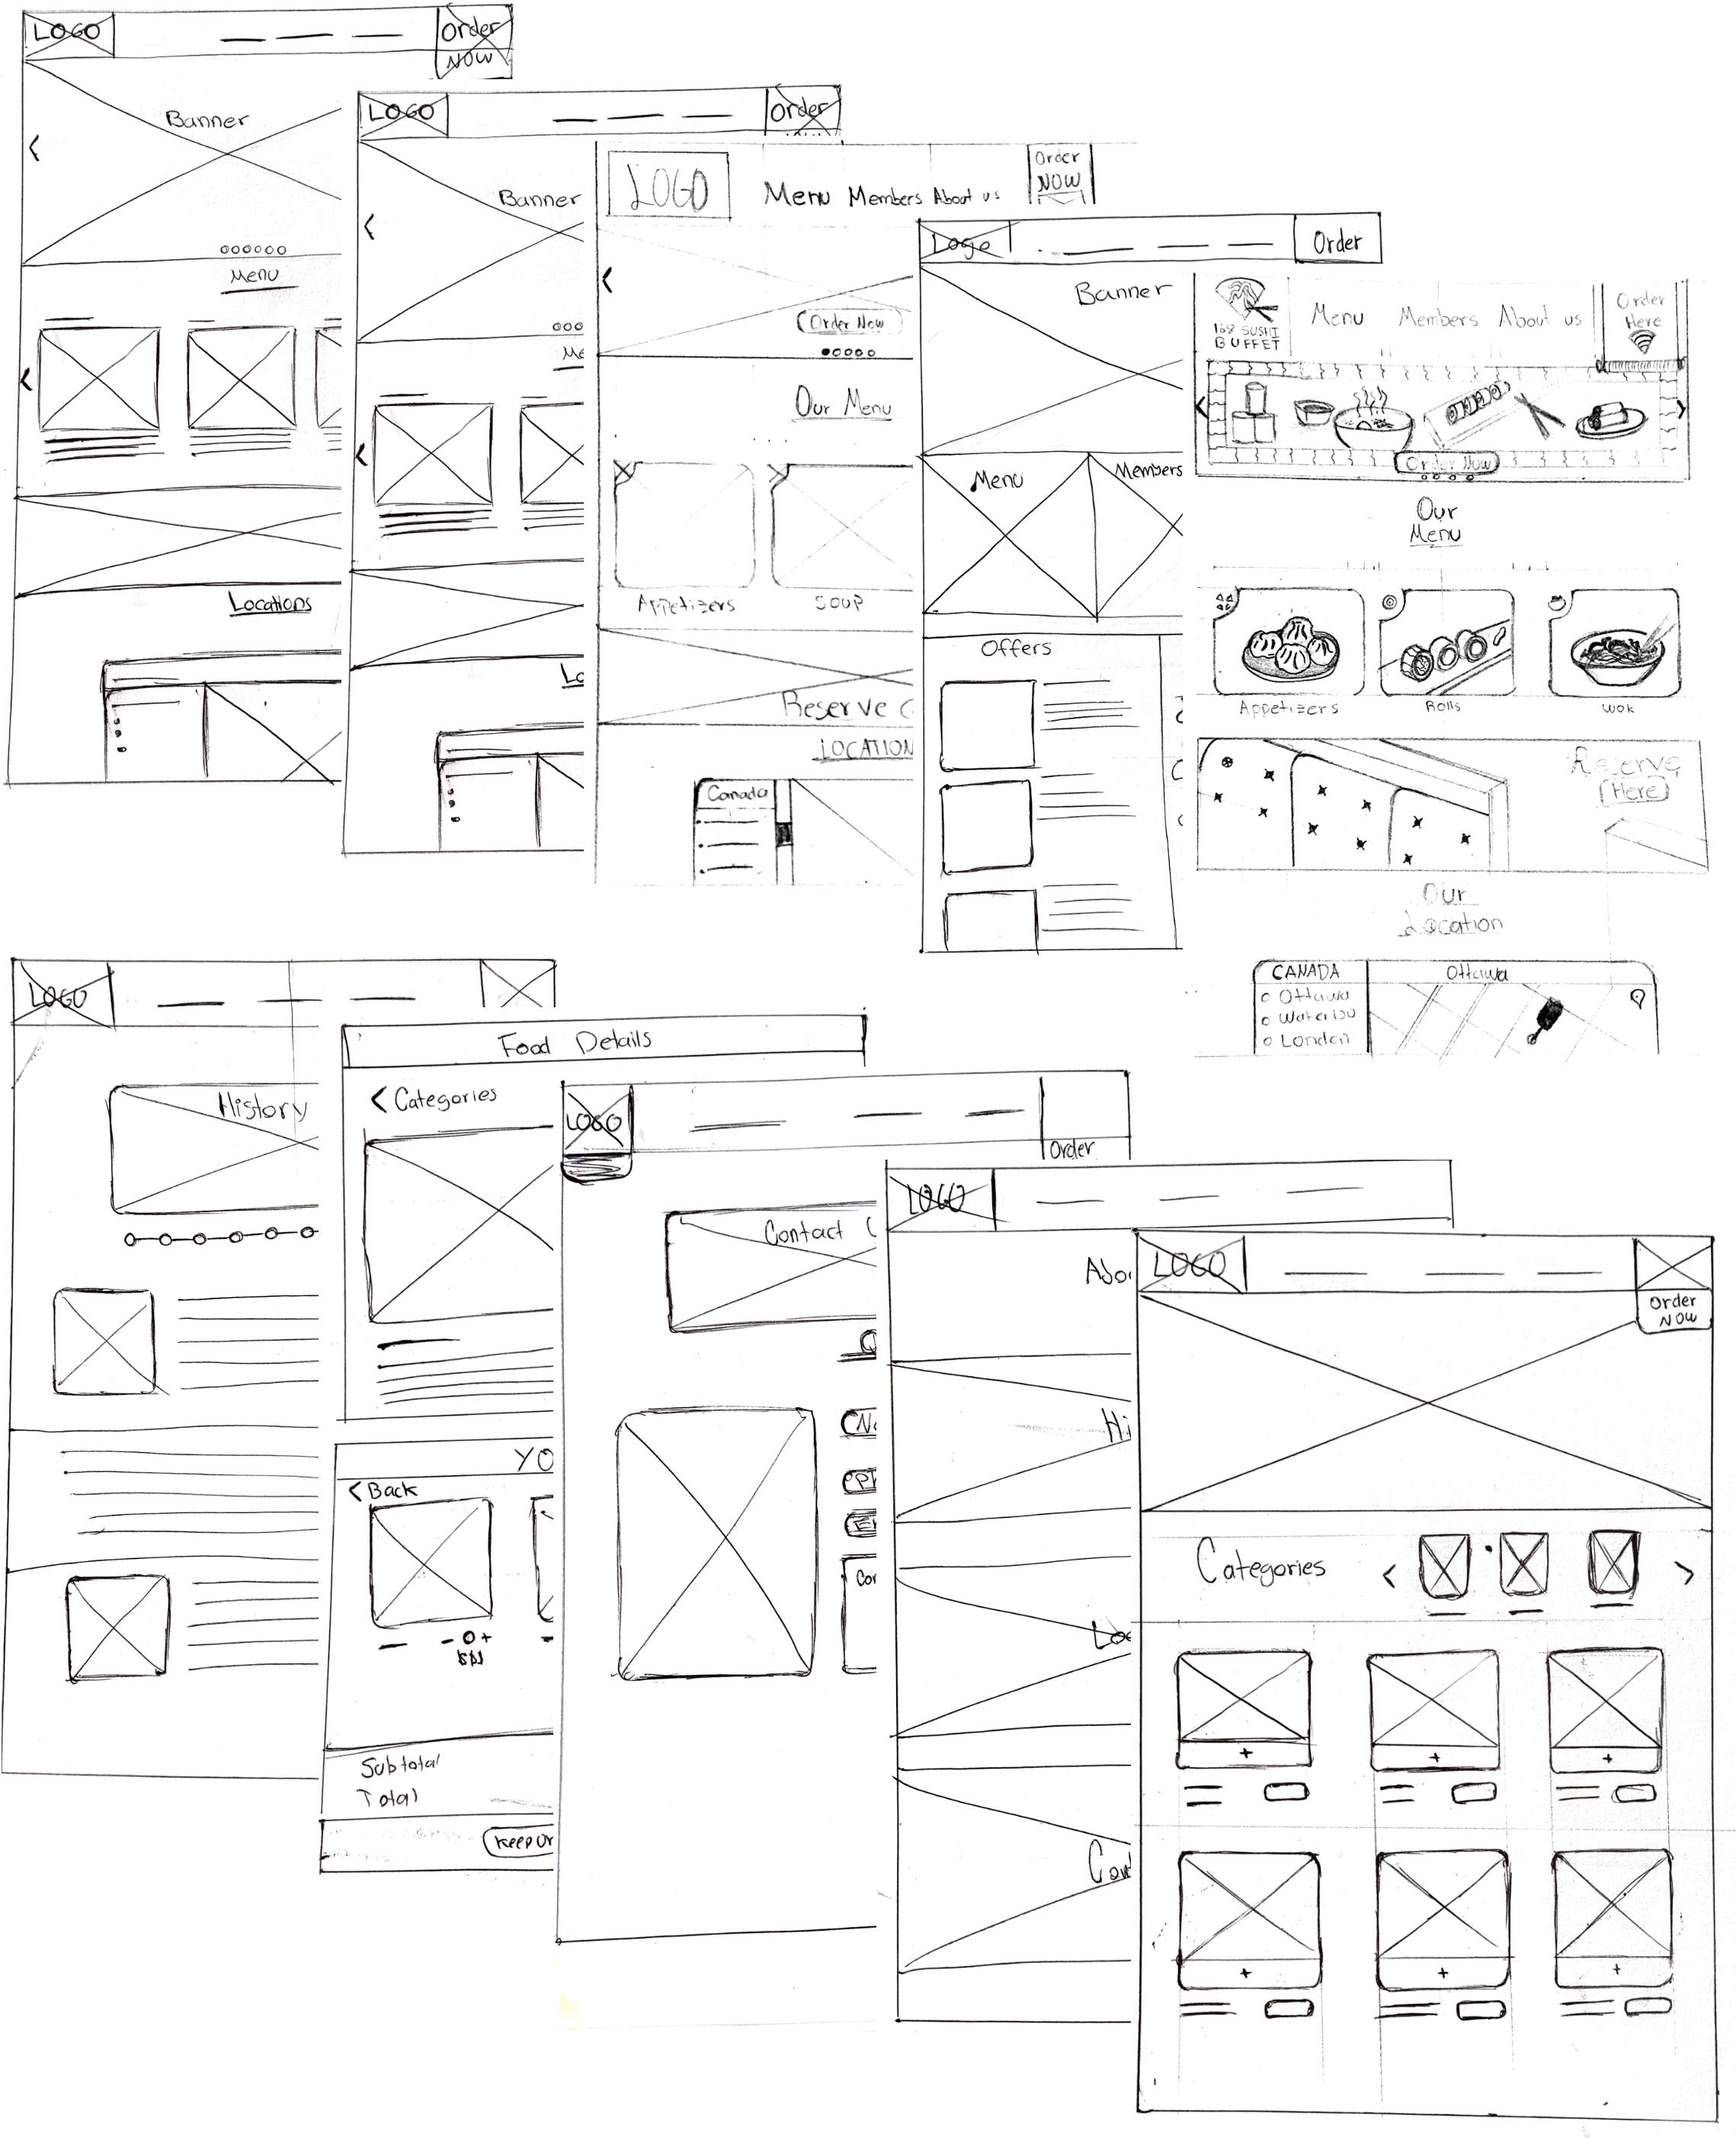 LOGO
Order
NOW
Banner
Menu
Locations
LOGO
Order
Banner
Me
Lo
LOGO
Menu Members About us
Order
NOW
Order Now
Our Menu
Appetizers
Soup
Reserve
LOCATION
Canada
Logo
Order
Banner
Menu
Members
Offers
168 SUSHI
BUFFET
Menu Members About us
Order
Here
Order Now
Our
Menu
Appetizers
Rolls
Wok
Reserve
Here
Our
Location
CANADA
Ottawa
Waterloo
London
Ottawa
LOGO
History
Food Details
< Categories
YO
< Back
- 0 +
$$$
Subtotal
Total
Keep Or
LOGO
Order
Contact
Q
Na
Ph
E
Co
LOGO
Abo
Hi
Loc
Con
LOGO
Order
NOW
Categories
< >
+
+
+
+
+
+